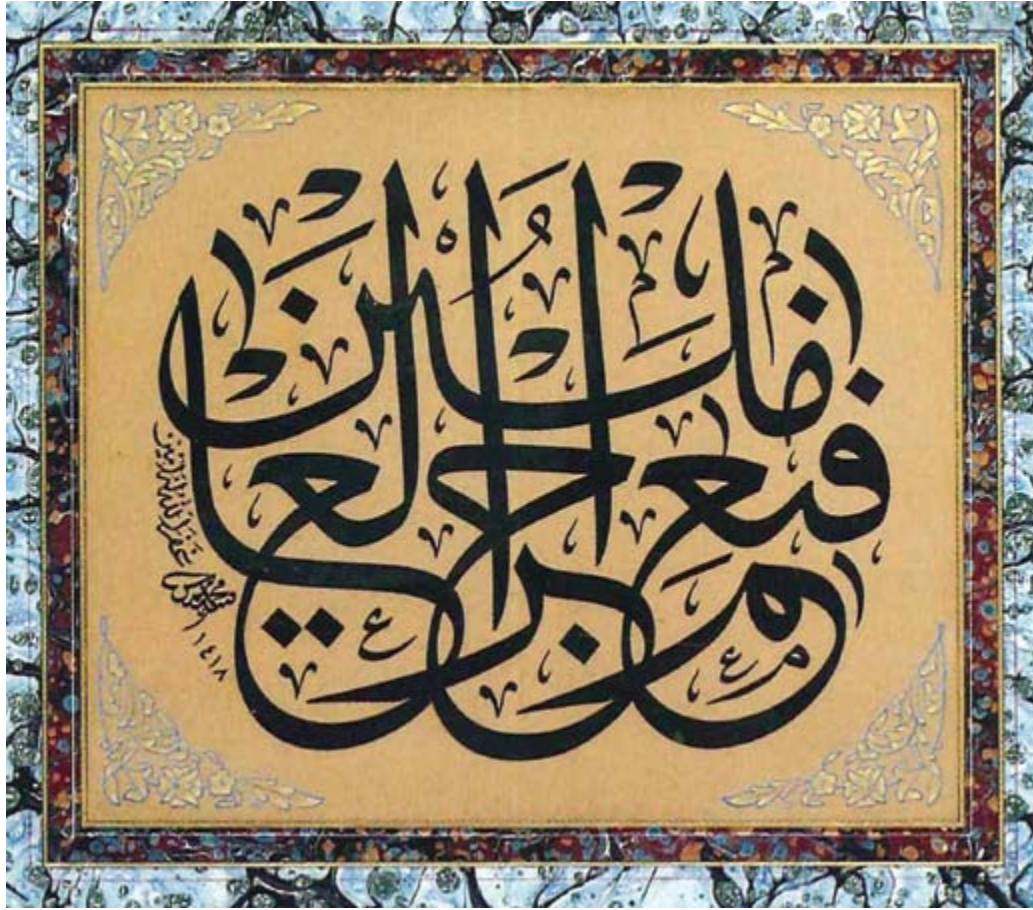 فنعم أجر العاملين
١٤١٨